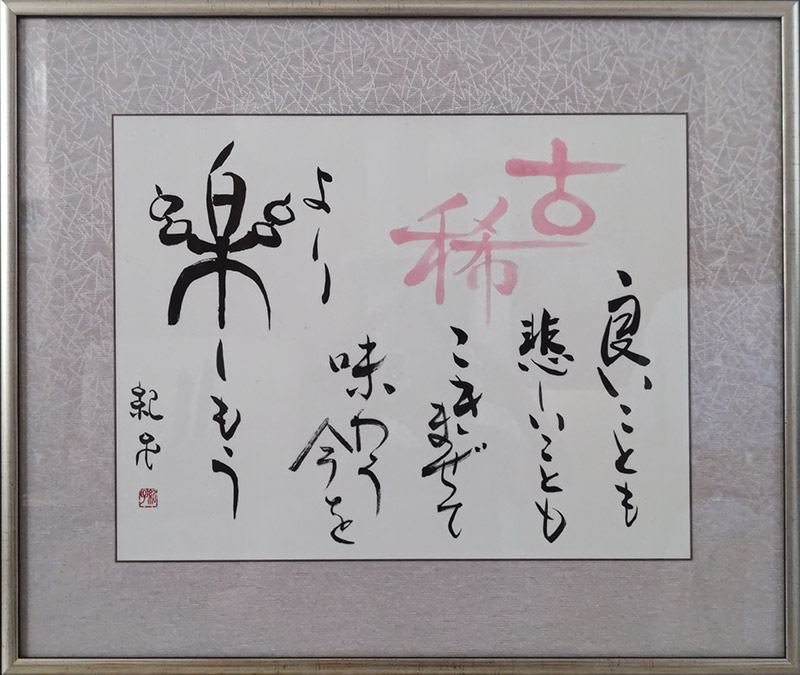 古稀
良いことも
悲しいことも
こきまぜて
味わう
今を
より
楽しもう